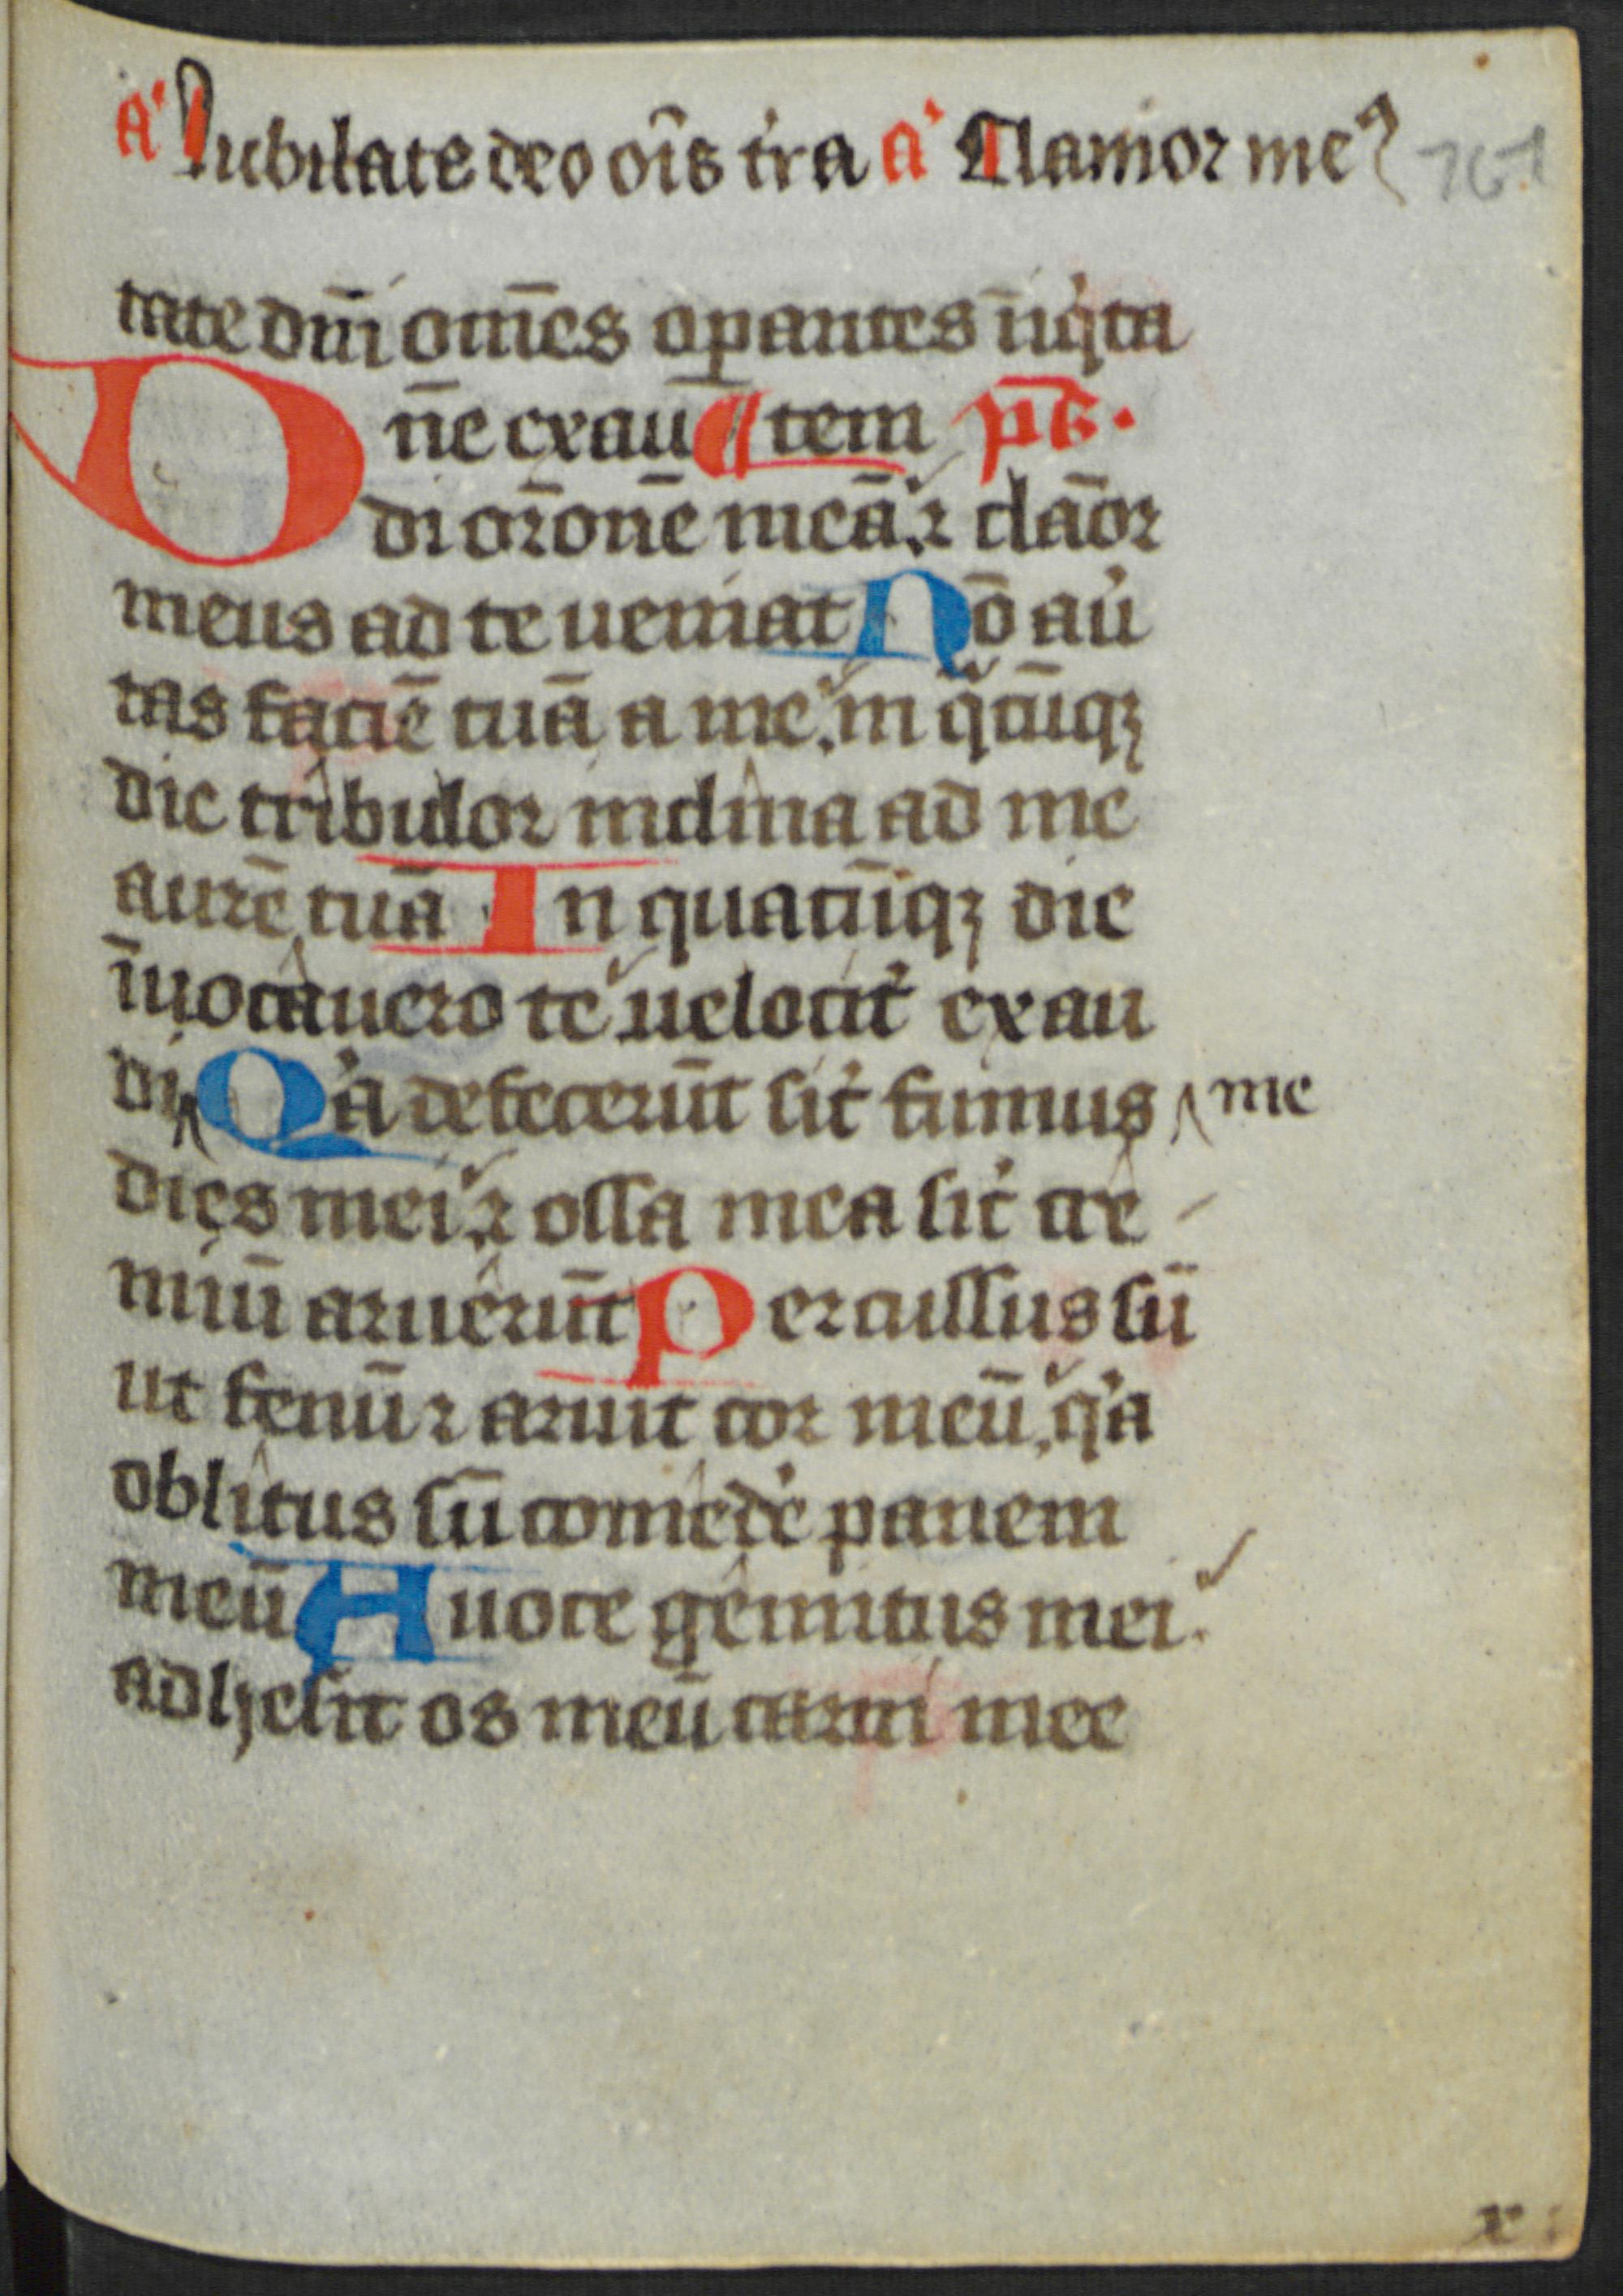 a' Iubilate deo oı̄s t'ra a' Clamor meꝰ 161
tate dn̄i om̄es oꝑantes īiqͥta
Dn̄e exau ¶ tem ps̄.
di or̄onē meā ⁊ clāor
meus ad te ueniat Nō au'
tas faciē tuā a me in qͣcūqꝫ
die tribulor inclina ad me
aurē tuā In quacūqꝫ die
īuocauero te uelocit' exau
di Qͥa defecerūt sic' fumus ‸ me
dies mei ⁊ ossa mea sic' cre
miū aruerūt Percussus sū
ut fenū ⁊ aruit cor meū qͥa
oblitus sū comede' panem
meū A uoce gemitus mei
adhesit os meū carni mee
x